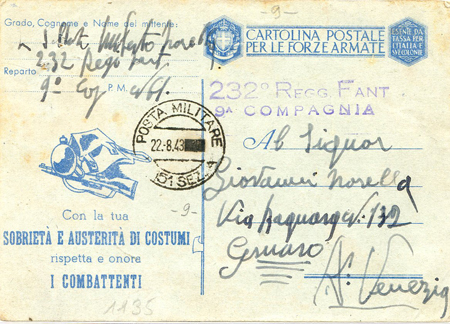 -9-
Grado, Cognome e Nome del mittente:
S. Ten. Umberto Morella
232 Regg Fant
Reparto
9ª Cog P.M.
CARTOLINA POSTALE
PER LE FORZE ARMATE
ESENTE DA
TASSA PER
L'ITALIA E
SUE COLONIE
232º REGG. FANT
9ª COMPAGNIA
POSTA MILITARE
22.-8.43
51 SEZ. A
Al Signor
Giovanni Morella
Via N. 132
-9-
Con la tua
SOBRIETÀ E AUSTERITÀ DI COSTUMI
rispetta e onore
I COMBATTENTI
Venezia
1135